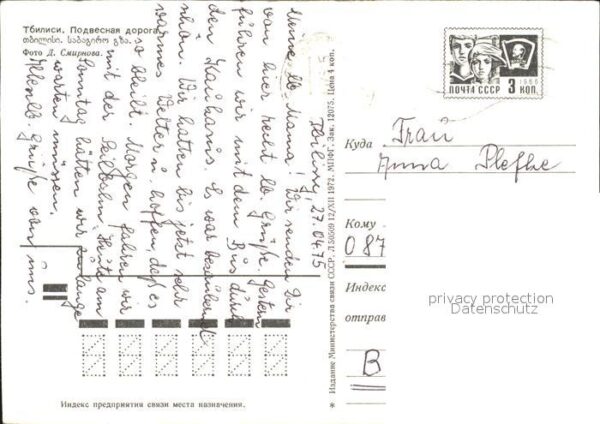 Тбилиси. Подвесная дорога
თბილისი. საბაგირო გზა.
Фото Д. Смирнова.
Tbilissi, 27.04.75
Meine lb. Mama! Wir senden Dir
von hier recht lb. Grüße. Gestern
fuhren wir mit dem Bus durch
den Kaukasus. Es war bezaubernd
schön. Wir hatten bis jetzt sehr
warmes Wetter u. hoffen, daß es
so bleibt. Morgen fahren wir
mit der Seilbahn. Heute am
Sonntag hätten wir zu lange
warten müssen.
Allerlb. Grüße von uns.
Издание Министерства связи СССР. Л 50509 12/XII 1972. МПФГ. Зак. 12075. Цена 4 коп.
1966
ПОЧТА СССР 3 КОП.
Куда Frau
Anna Plefke
Кому
087
Индекс
отправ
B
privacy protection
datenschutz
Индекс предприятия связи места назначения.